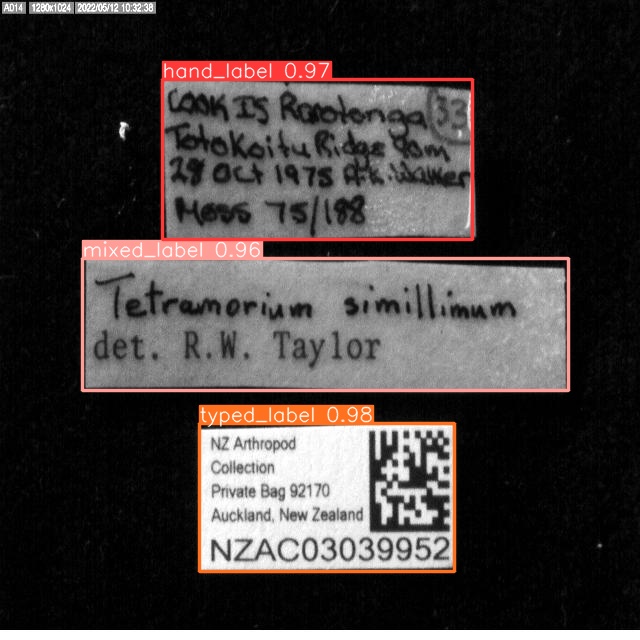 A014 1280x1024 2022/05/12 10:32:38
hand_label 0.97
COOK IS Rarotonga 33
Totokoitu Ridge 90m
28 Oct 1975 A.K. Walker
Moss 75/188
mixed_label 0.96
Tetramorium simillimum
det. R.W. Taylor
typed_label 0.98
NZ Arthropod
Collection
Private Bag 92170
Auckland, New Zealand
NZAC03039952